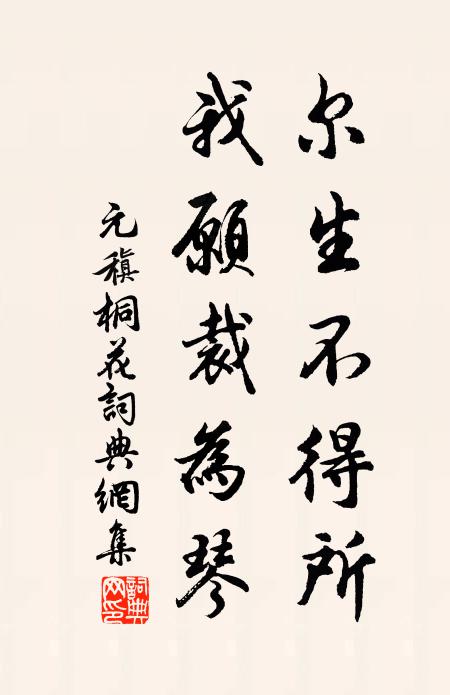 尔生不得所
我願裁為琴
元稹桐花詞典網集
詞典网印